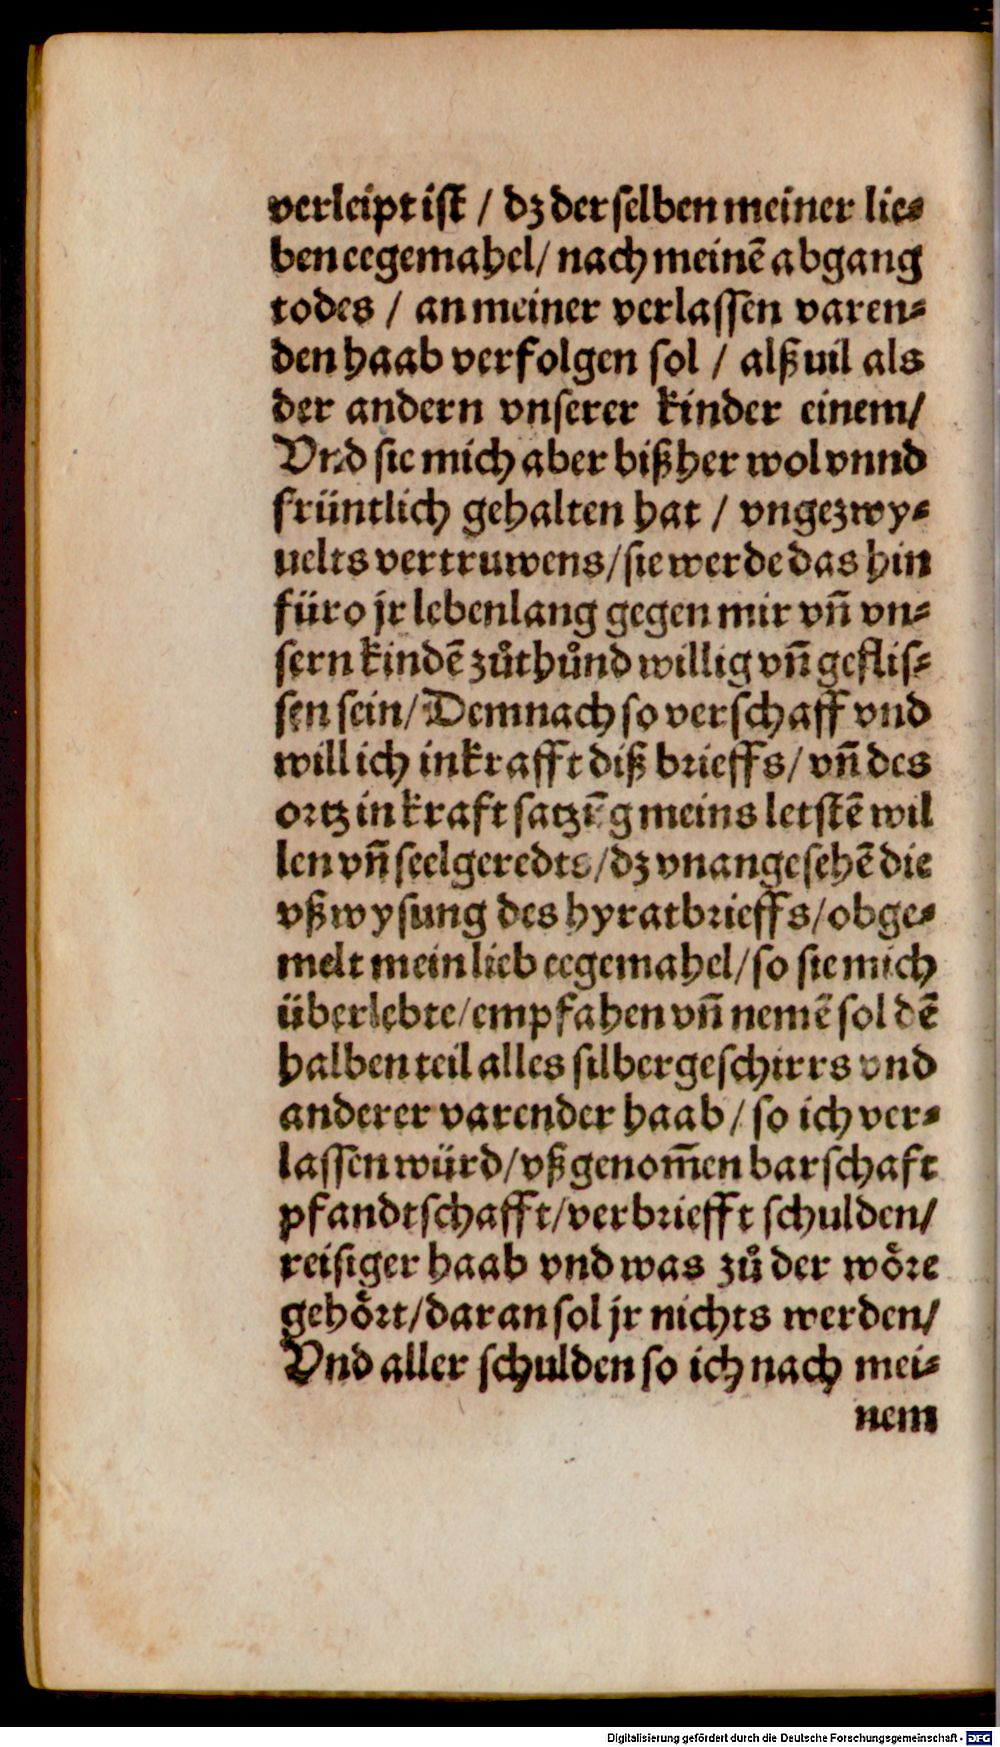 verleipt ist / dz der selben meiner lie-
ben eegemahel/ nach meinē abgang
todes / an meiner verlassen varen-
den haab verfolgen sol / alß uil als
der andern vnserer kinder einem/
Vnd sie mich aber bißher wol vnnd
früntlich gehalten hat / vngezwy-
uelts vertruwens/sie werde das hin
füro jr lebenlang gegen mir vñ vn-
sern kindē zůthůnd willig vñ geflis-
sen sein/ Demnach so verschaff vnd
will ich in krafft diß brieffs/ vñ des
ortz in kraft satzūg meins letstē wil
len vñ seelgeredts/dz vnangesehē die
vßwysung des hyratbrieffs/obge-
melt mein lieb eegemahel/so sie mich
überlebte/empfahen vñ nemē sol dē
halben teil alles silbergeschirrs vnd
anderer varender haab/ so ich ver-
lassen würd/vßgenom̄en barschaft
pfandtschafft/verbriefft schulden/
reisiger haab vnd was zů der wo̊re
geho̊rt/daran sol jr nichts werden/
Vnd aller schulden so ich nach mei-
nem
Digitalisierung gefördert durch die Deutsche Forschungsgemeinschaft - DFG